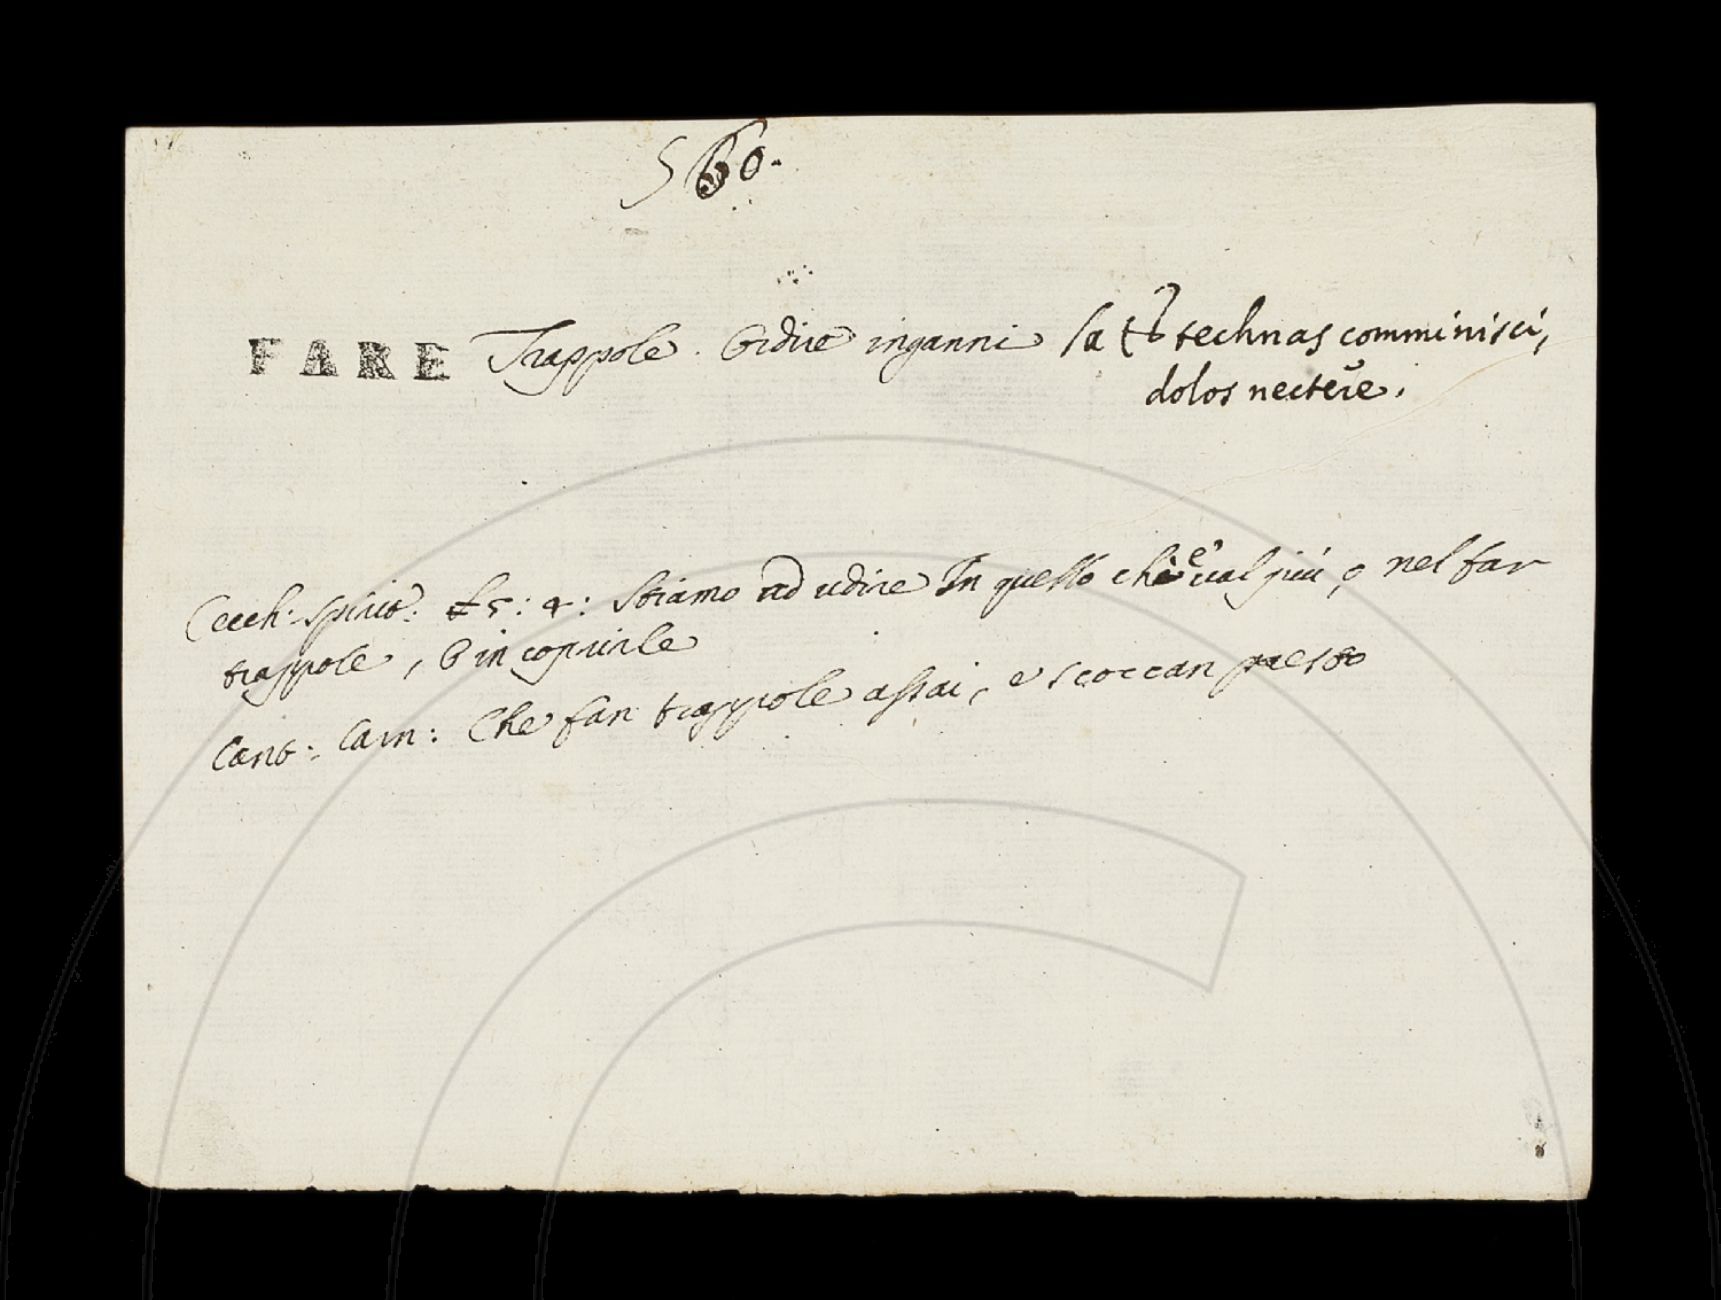 560.
FARE Trappole. Ordire inganni La t̃b technas comminisci,
dolos nectere.
Cecch: Spirit: 5: 4: Stiamo ad udire In quello che e' val più, o nel far
trappole, O in coprirle
Cant: Carn: Che fan trappole assai, e scoccan presto